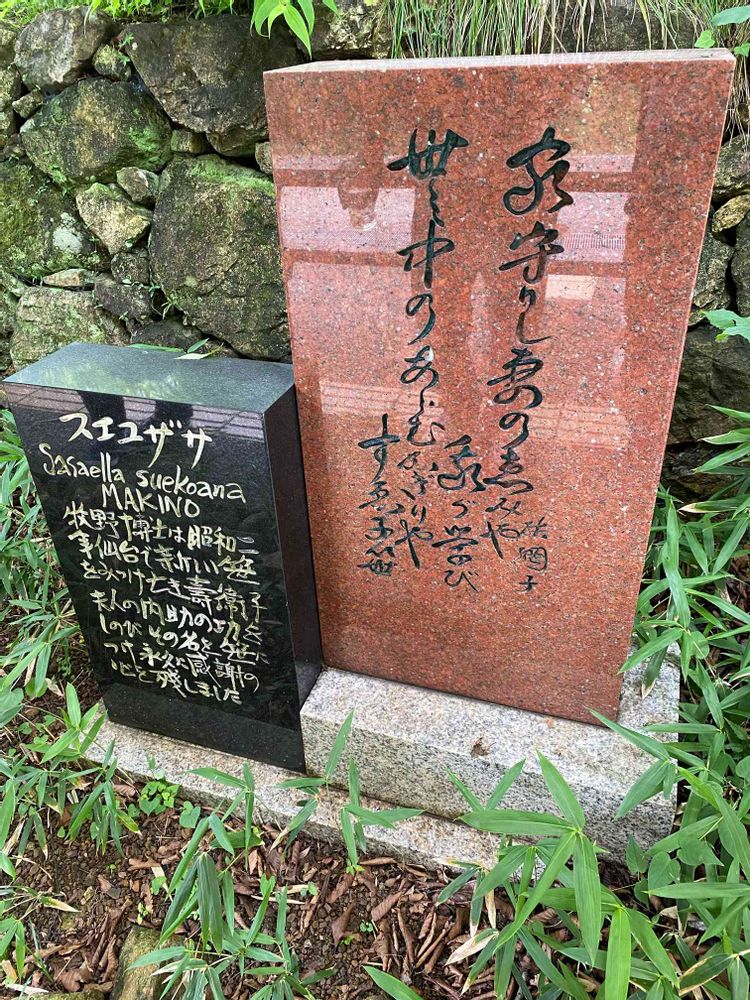 スエコザサ
Sasaella suekoana
MAKINO
牧野博士は昭和二
年仙台で新しい笹
をみつけ亡き壽衛子
夫人の内助の功を
しのびその名を笹に
つけ永久に感謝の
心を残しました
家守りし妻の恵みや
我が学び
結網子
世の中のあらむかぎりや
すゑ子笹